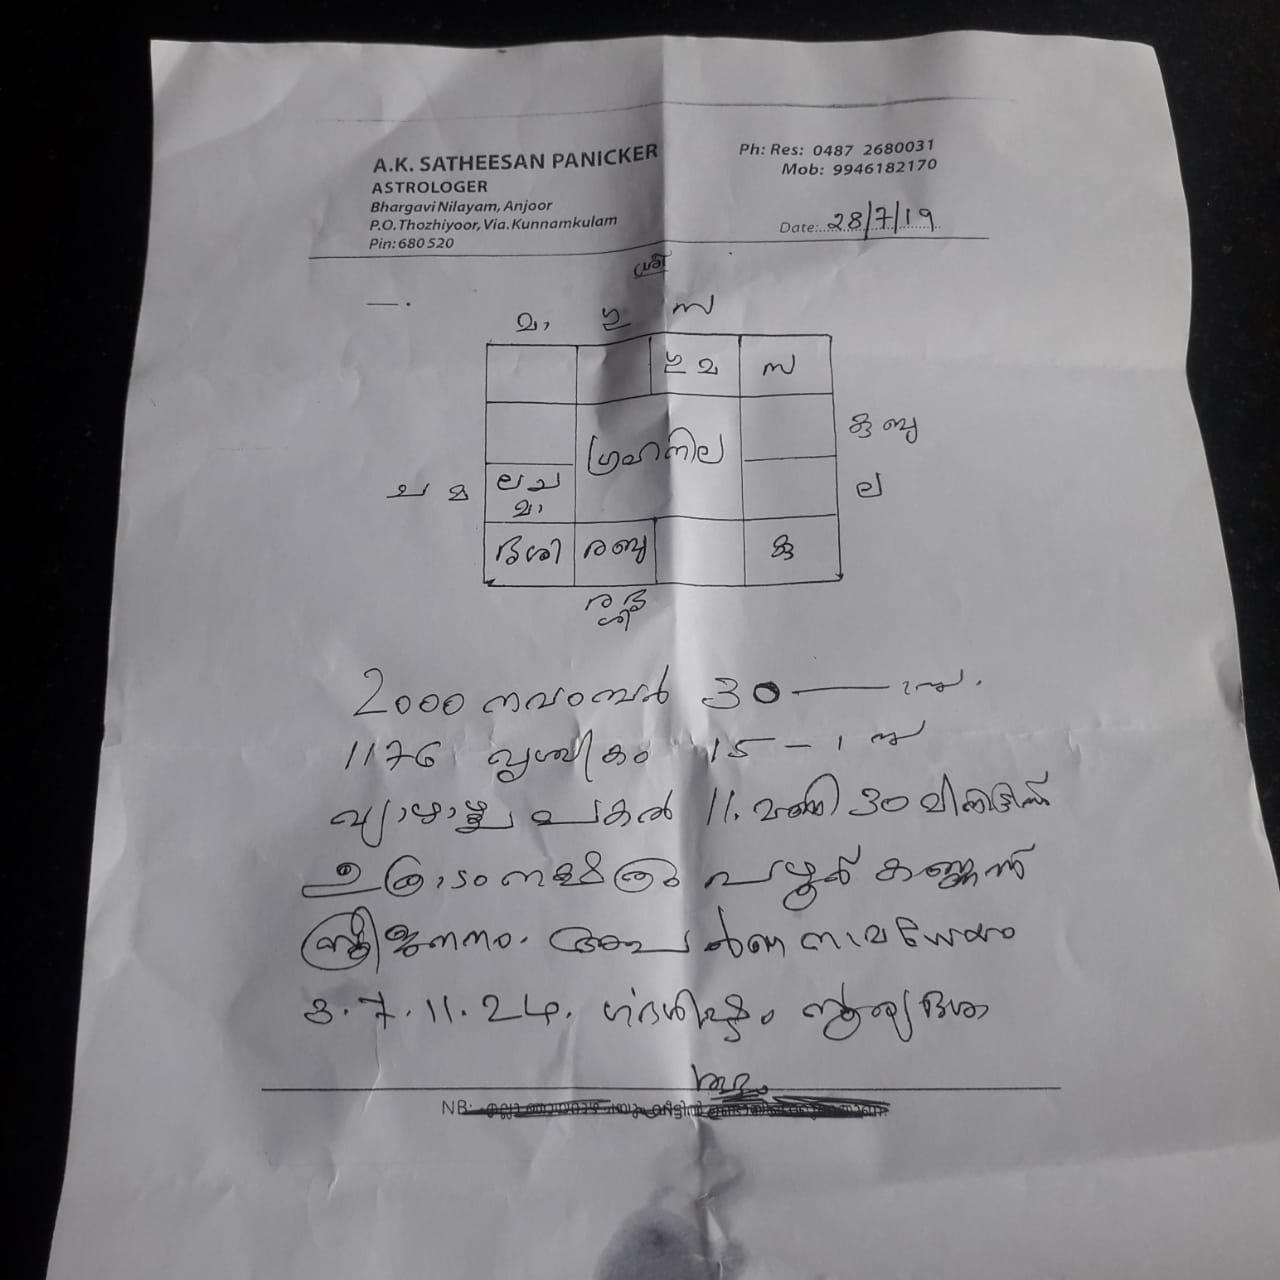 A.K. SATHEESAN PANICKER
ASTROLOGER
Bhargavi Nilayam, Anjoor
P.O. Thozhiyoor, Via. Kunnamkulam
Pin: 680 520
Ph: Res: 0487 2680031
Mob: 9946182170
Date: 28/7/19
ശ്രീ
മാ ഗു സ
ഗു മ സ
കു ബു
ഗ്രഹനില
ച മ ല ച ല
മാ
ശി ര ബു കു
ര
ശി
2000 നവംബർ 30
1176 വൃശ്ചികം 15 - 1
വ്യാഴാഴ്ച പകൽ 11. മണി 30 മിനിട്ടിന്
ഉത്രാടം നക്ഷത്രം
സ്ത്രീജനനം.
3. 7. 11. 24. ഗർഭശിഷ്ടം സൂര്യദശ
ശുഭം
NB: